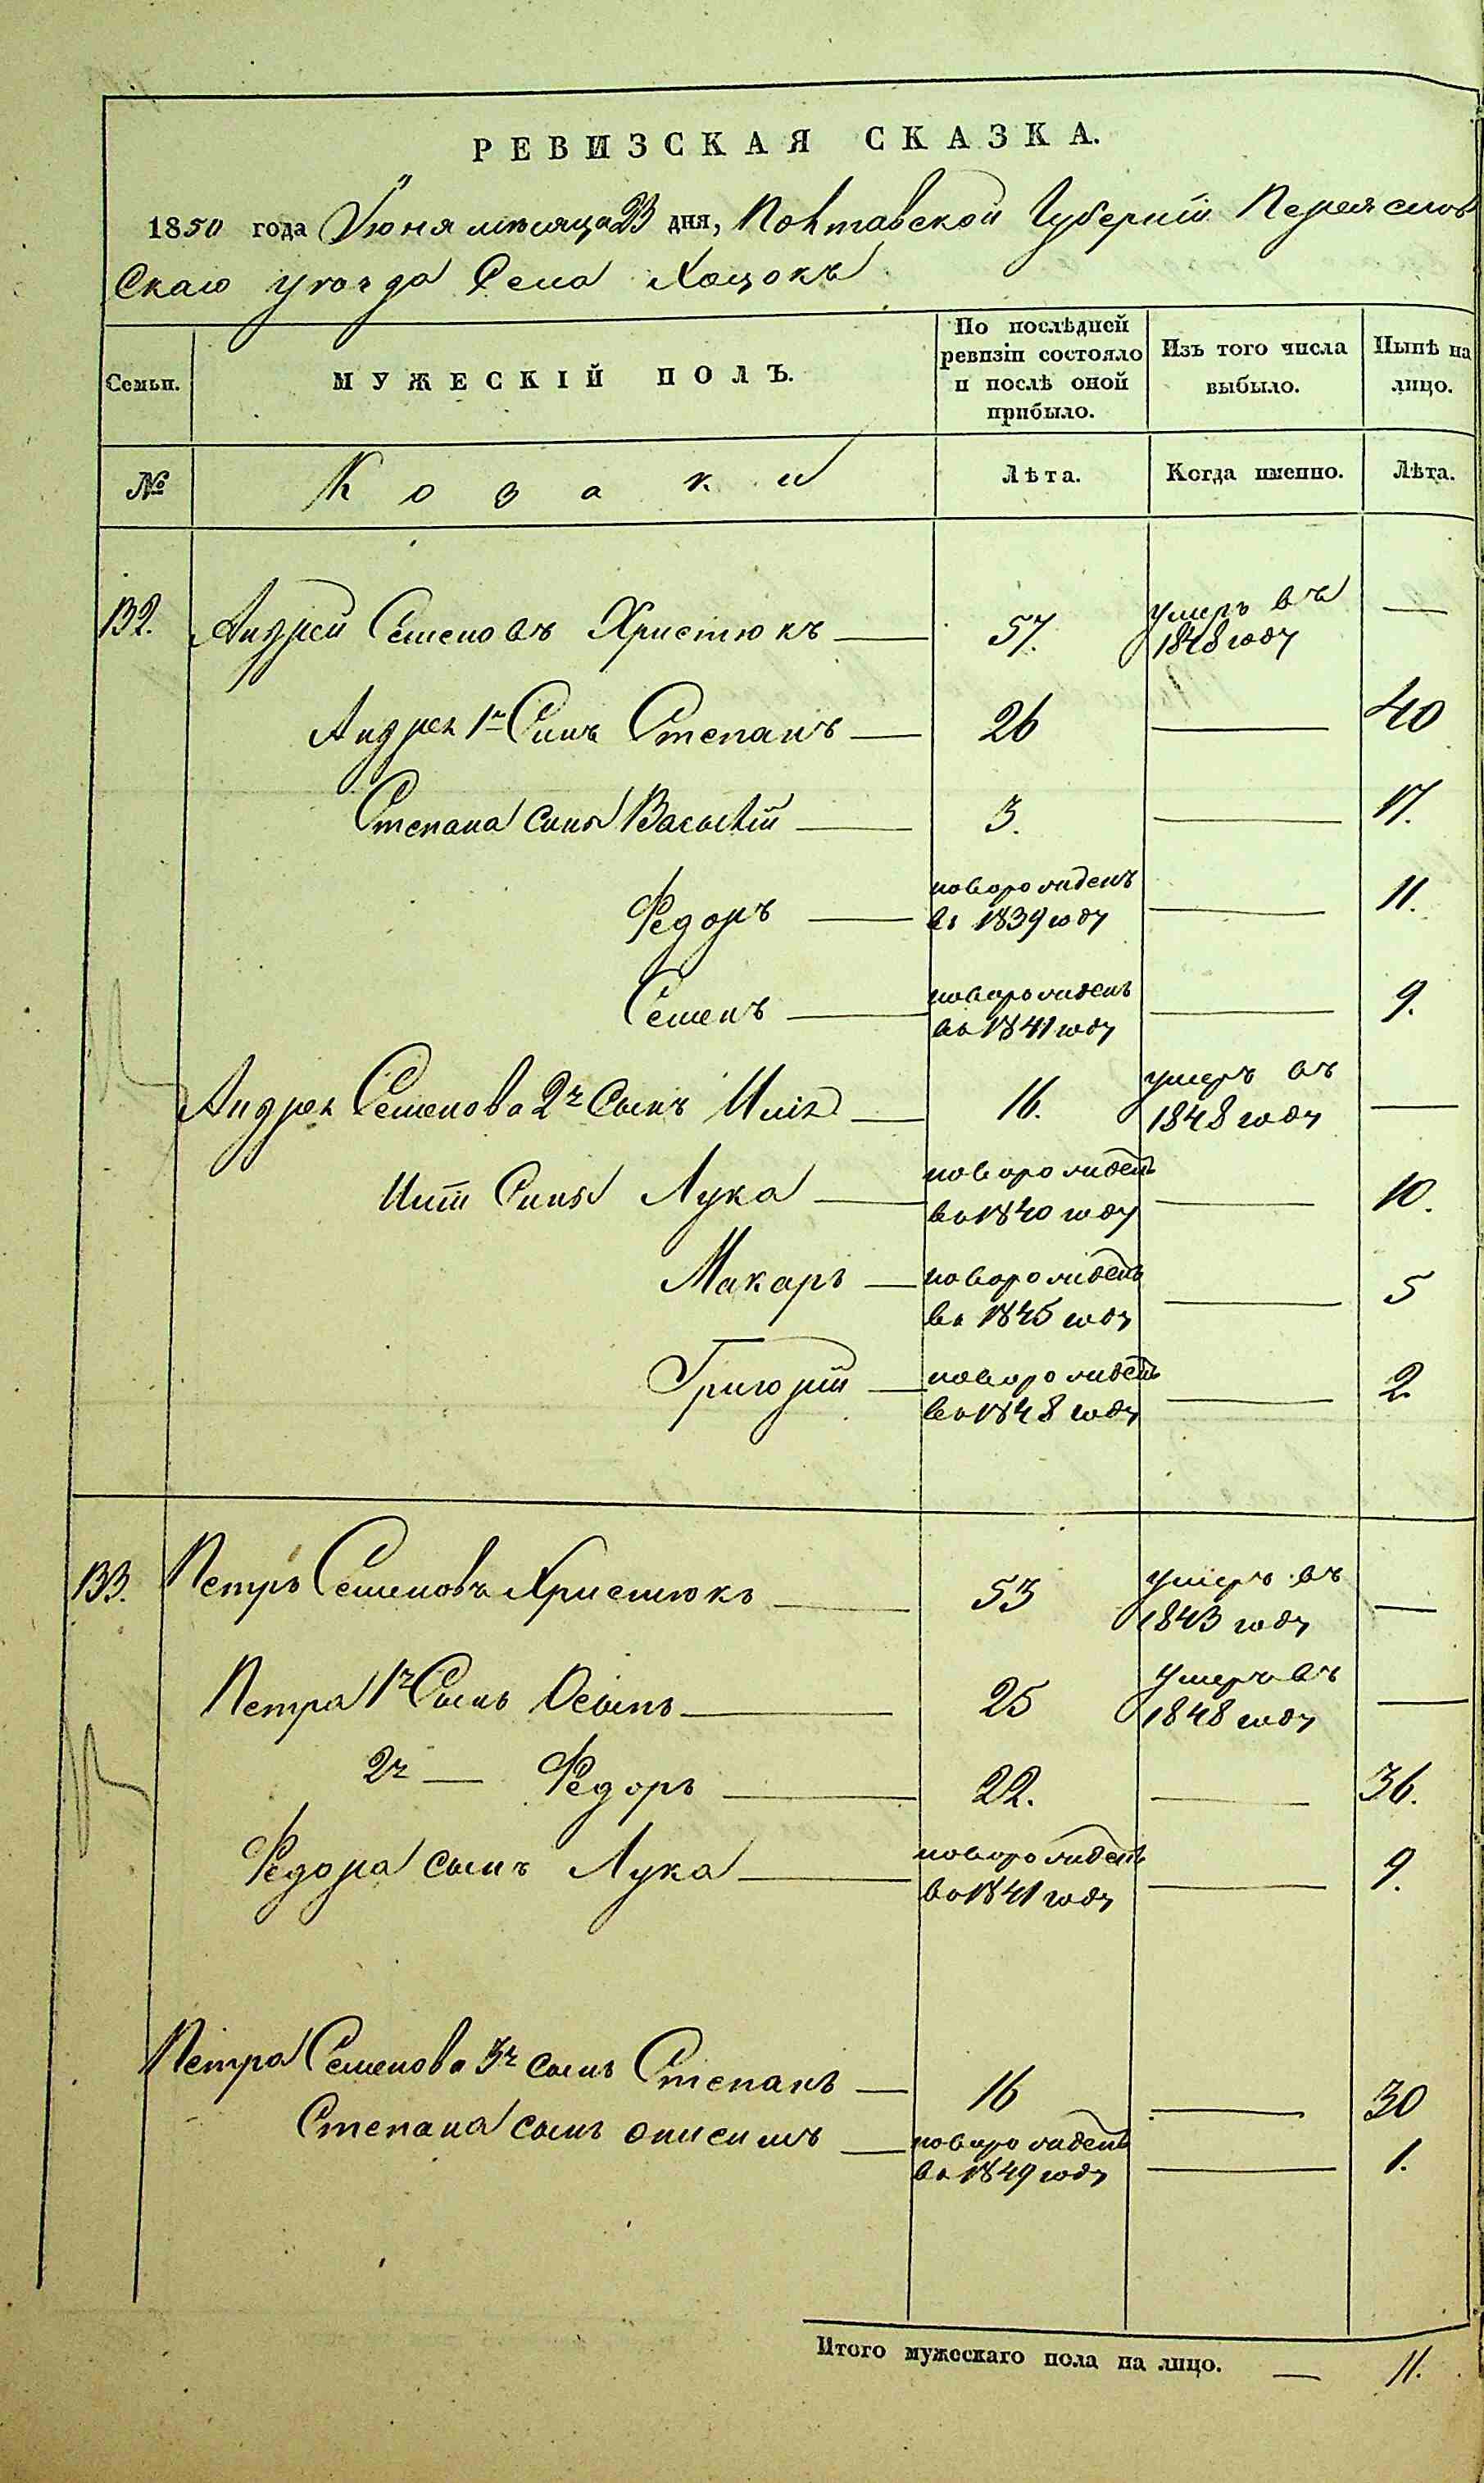 РЕВИЗСКАЯ СКАЗКА.
1850 года Іюня мѣсяца 23 дня, Полтавской Губерніи Переяслов
скаго уѣзда Села Хоцокъ
Семьи. МУЖЕСКІЙ ПОЛЪ. По послѣдней ревизіи состояло и послѣ оной прибыло. Изъ того числа выбыло. Нынѣ на лицо.
№ Козаки Лѣта. Когда именно. Лѣта.
132. Андрей Семеновъ Христюкъ — 57. умеръ въ 1848 году —
Андрея 1й Сынъ Степанъ — 26 — 40
Степана сынъ Василій — 3. — 17.
Федоръ — новорожденъ въ 1839 году — 11.
Семенъ — новорожденъ въ 1841 году — 9.
Андрея Семенова 2й Сынъ Илія — 16. умеръ въ 1848 году —
Иліи Сынъ Лука — новорожденъ въ 1840 году — 10.
Макаръ — новорожденъ въ 1845 году — 5
Григорій — новорожденъ въ 1848 году — 2
133. Петръ Семеновъ Христюкъ — 53 умеръ въ 1843 году —
Петра 1й Сынъ Осипъ — 25 умеръ въ 1848 году —
2й — Федоръ — 22. — 36.
Федора сынъ Лука — новорожденъ въ 1841 году — 9.
Петра Семенова 3й сынъ Степанъ — 16 — 30
Степана сынъ Онисимъ — новорожденъ въ 1849 году — 1.
Итого мужескаго пола на лицо. — 11.